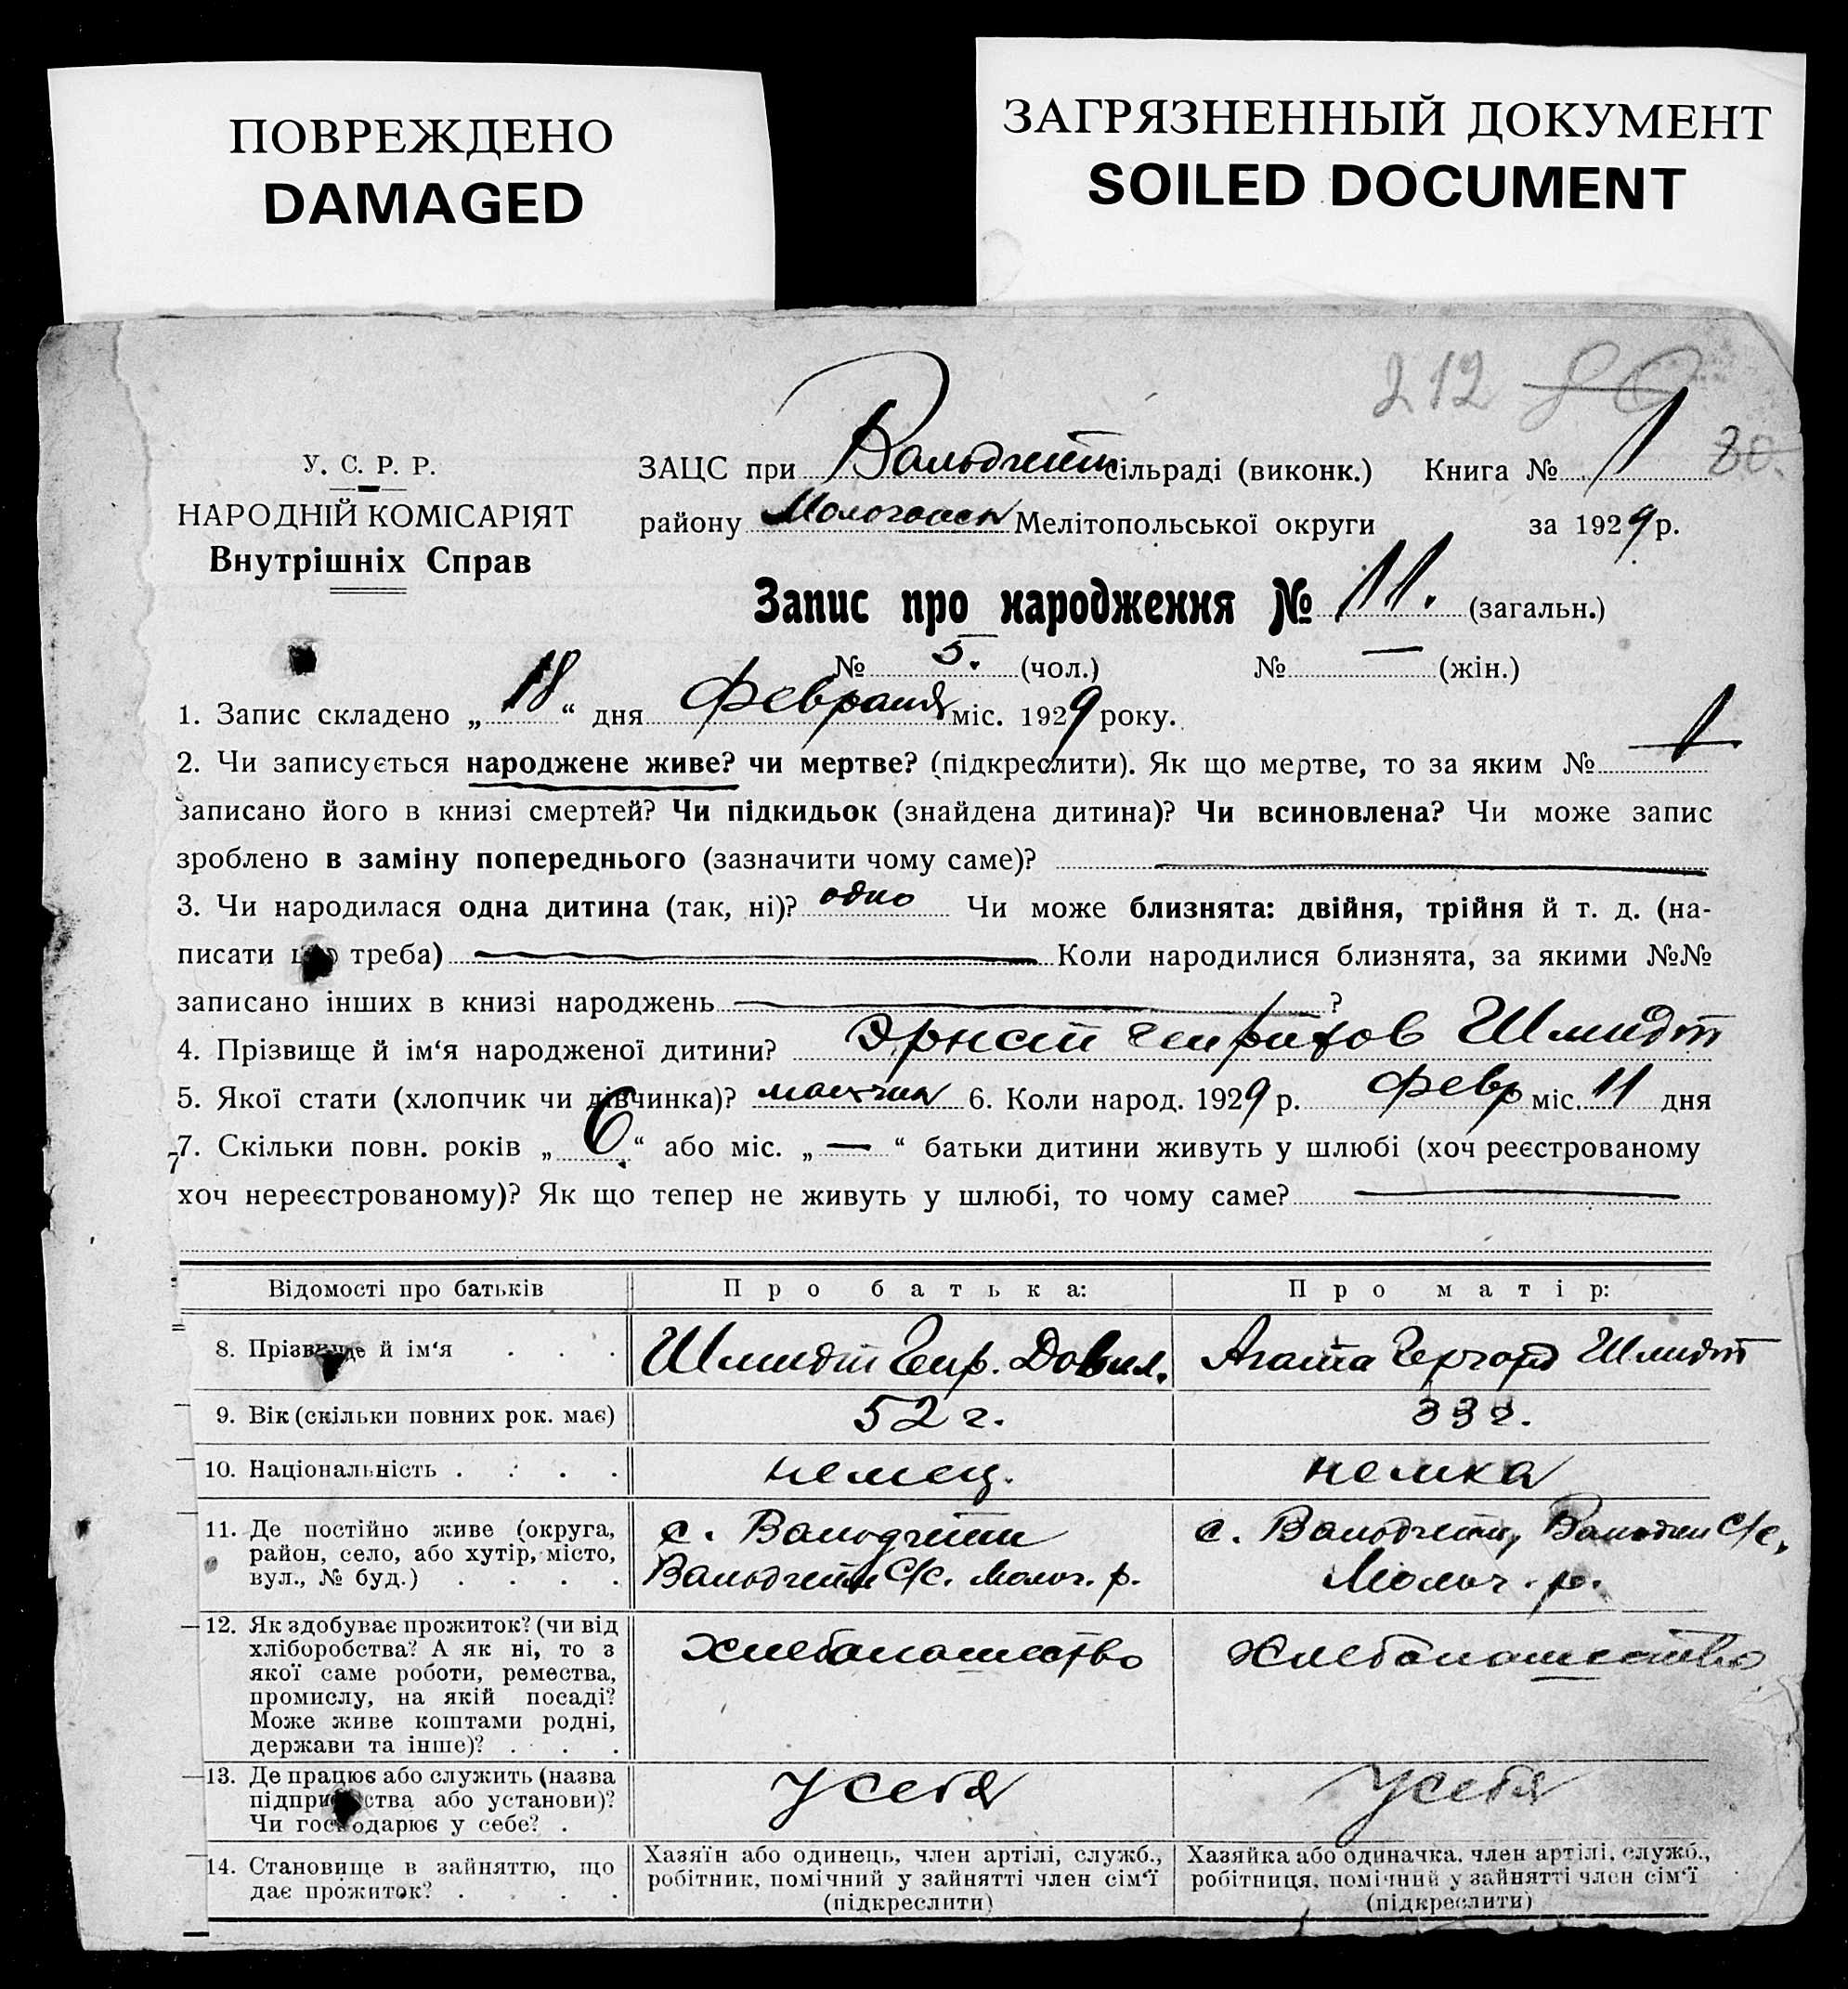 ПОВРЕЖДЕНО
DAMAGED
ЗАГРЯЗНЕННЫЙ ДОКУМЕНТ
SOILED DOCUMENT
212 80
80.
У. С. Р. Р.
НАРОДНІЙ КОМІСАРІЯТ
Внутрішніх Справ
ЗАЦС при Вальдгейм сільраді (виконк.) Книга № 1
району Молочанск Мелітопольської округи за 1929 р.
Запис про народження № 11. (загальн.)
№ 5. (чол.) № — (жін.)
1. Запис складено „ 18 “ дня февраля міс. 1929 року.
2. Чи записується народжене живе? чи мертве? (підкреслити). Як що мертве, то за яким №
записано його в книзі смертей? Чи підкидьок (знайдена дитина)? Чи всиновлена? Чи може запис
зроблено в заміну попереднього (зазначити чому саме)?
3. Чи народилася одна дитина (так, ні)? одно Чи може близнята: двійня, трійня й т. д. (на-
писати що треба) Коли народилися близнята, за якими №№
записано інших в книзі народжень ?
4. Прізвище й ім‘я народженої дитини? Эрнст Генрихов Шмидт
5. Якої стати (хлопчик чи дівчинка)? мальчик 6. Коли народ. 1929 р. февр міс. 11 дня
7. Скільки повн. років „ 6 “ або міс. „ — “ батьки дитини живуть у шлюбі (хоч реєстрованому
хоч нереєстрованому)? Як що тепер не живуть у шлюбі, то чому саме?
Відомості про батьків
Про батька:
Про матір:
8. Прізвище й ім‘я . . .
Шмидт Генр. Давид.
Агата Гергард Шмидт
9. Вік (скільки повних рок. має)
52 г.
33 г.
10. Національність . . . .
немец.
немка
11. Де постійно живе (округа,
район, село, або хутір, місто,
вул., № буд.) . . . .
с. Вальдгейм
Вальдгейм С/с. Молоч. р.
с. Вальдгейм, Вальдгейм С/с,
Молоч. р.
12. Як здобуває прожиток? (чи від
хліборобства? А як ні, то з
якої саме роботи, ремества,
промислу, на якій посаді?
Може живе коштами родні,
держави та інше)? . . .
хлебопашество
хлебопашество
13. Де працює або служить (назва
підприємства або установи)?
Чи господарює у себе? .
у себя
у себя
14. Становище в зайняттю, що
дає прожиток? . . . .
Хазяїн або одинець, член артілі, служб.,
робітник, помічний у зайнятті член сім‘ї
(підкреслити)
Хазяйка або одиначка, член артілі, служб.,
робітниця, помічний у зайнятті член сім‘ї
(підкреслити)